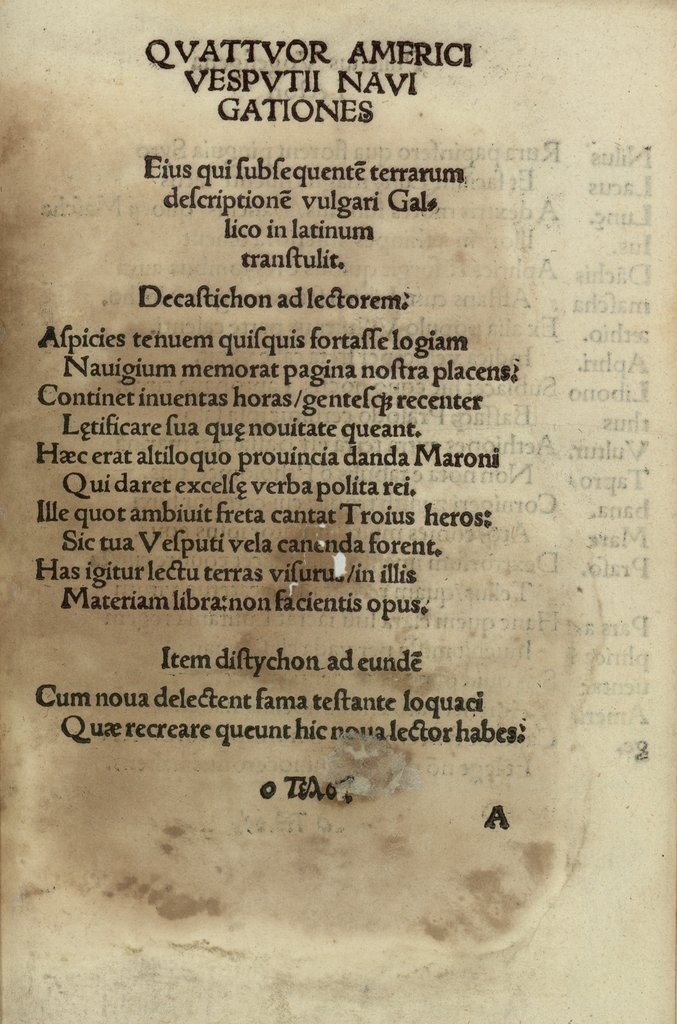 QVATTVOR AMERICI
VESPVTII NAVI
GATIONES
Eius qui ſubſequentē terrarum
deſcriptionē vulgari Gal⸗
lico in latinum
tranſtulit.
Decaſtichon ad lectorem:
Aſpicies tenuem quiſquis fortaſſe logiam
Nauigium memorat pagina noſtra placens:
Continet inuentas horas/genteſqꝫ recenter
Lętificare ſua quę nouitate queant.
Hæc erat altiloquo prouincia danda Maroni
Qui daret excelſę verba polita rei.
Ille quot ambiuit freta cantat Troius heros:
Sic tua Veſputi vela canenda forent.
Has igitur lectu terras viſurus/in illis
Materiam libra:non facientis opus.
Item diſtychon ad eundē
Cum noua delectent fama teſtante loquaci
Quæ recreare queunt hic noua lector habes:
ο Τέλο
A